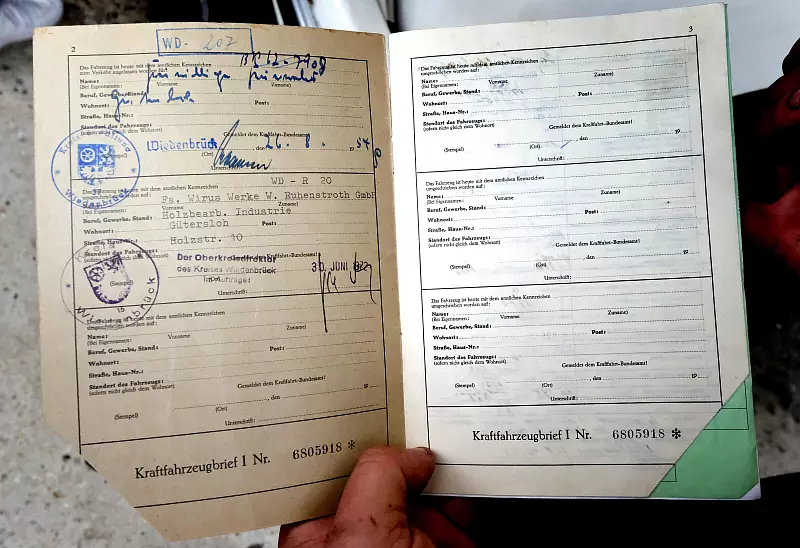 2
WD - 207
Das Fahrzeug ist heute mit dem amtlichen Kennzeichen
zum Verkehr zugelassen worden für:
Name:
(Bei Eigennamen: Vorname Zuname)
Beruf, Gewerbe, Stand:
Wohnort: Post:
Straße, Haus-Nr.:
Standort des Fahrzeugs:
(sofern nicht gleich dem Wohnort) Gemeldet dem Kraftfahrt-Bundesamt!
Wiedenbrück, den 26. 8. 1954
(Stempel) (Ort)
Unterschrift:
Wiedenbrück
Das Fahrzeug ist heute mit dem amtlichen Kennzeichen
umgeschrieben worden auf: WD - R 20
Name: Fa. Wirus Werke W. Ruhenstroth GmbH
(Bei Eigennamen: Vorname Zuname)
Beruf, Gewerbe, Stand: Holzbearb. Industrie
Wohnort: Gütersloh
Straße, Haus-Nr.: Holzstr. 10
Standort des Fahrzeugs:
Der Oberkreisdirektor
des Kreises Wiedenbrück
Im Auftrage:
30. JUNI
(Stempel) (Ort)
Unterschrift:
Kreis
Wiedenbrück
15
Das Fahrzeug ist heute mit dem amtlichen Kennzeichen
umgeschrieben worden auf:
Name:
(Bei Eigennamen: Vorname Zuname)
Beruf, Gewerbe, Stand:
Wohnort: Post:
Straße, Haus-Nr.:
Standort des Fahrzeugs:
(sofern nicht gleich dem Wohnort) Gemeldet dem Kraftfahrt-Bundesamt!
, den 19
(Stempel) (Ort)
Unterschrift:
Kraftfahrzeugbrief I Nr. 6805918 *
3
Das Fahrzeug ist heute mit dem amtlichen Kennzeichen
umgeschrieben worden auf:
Name:
(Bei Eigennamen: Vorname Zuname)
Beruf, Gewerbe, Stand:
Wohnort: Post:
Straße, Haus-Nr.:
Standort des Fahrzeugs:
(sofern nicht gleich dem Wohnort) Gemeldet dem Kraftfahrt-Bundesamt!
, den 19
(Stempel) (Ort)
Unterschrift:
Das Fahrzeug ist heute mit dem amtlichen Kennzeichen
umgeschrieben worden auf:
Name:
(Bei Eigennamen: Vorname Zuname)
Beruf, Gewerbe, Stand:
Wohnort: Post:
Straße, Haus-Nr.:
Standort des Fahrzeugs:
(sofern nicht gleich dem Wohnort) Gemeldet dem Kraftfahrt-Bundesamt!
, den 19
(Stempel) (Ort)
Unterschrift:
Das Fahrzeug ist heute mit dem amtlichen Kennzeichen
umgeschrieben worden auf:
Name:
(Bei Eigennamen: Vorname Zuname)
Beruf, Gewerbe, Stand:
Wohnort: Post:
Straße, Haus-Nr.:
Standort des Fahrzeugs:
(sofern nicht gleich dem Wohnort) Gemeldet dem Kraftfahrt-Bundesamt!
, den 19
(Stempel) (Ort)
Unterschrift:
Kraftfahrzeugbrief I Nr. 6805918 *